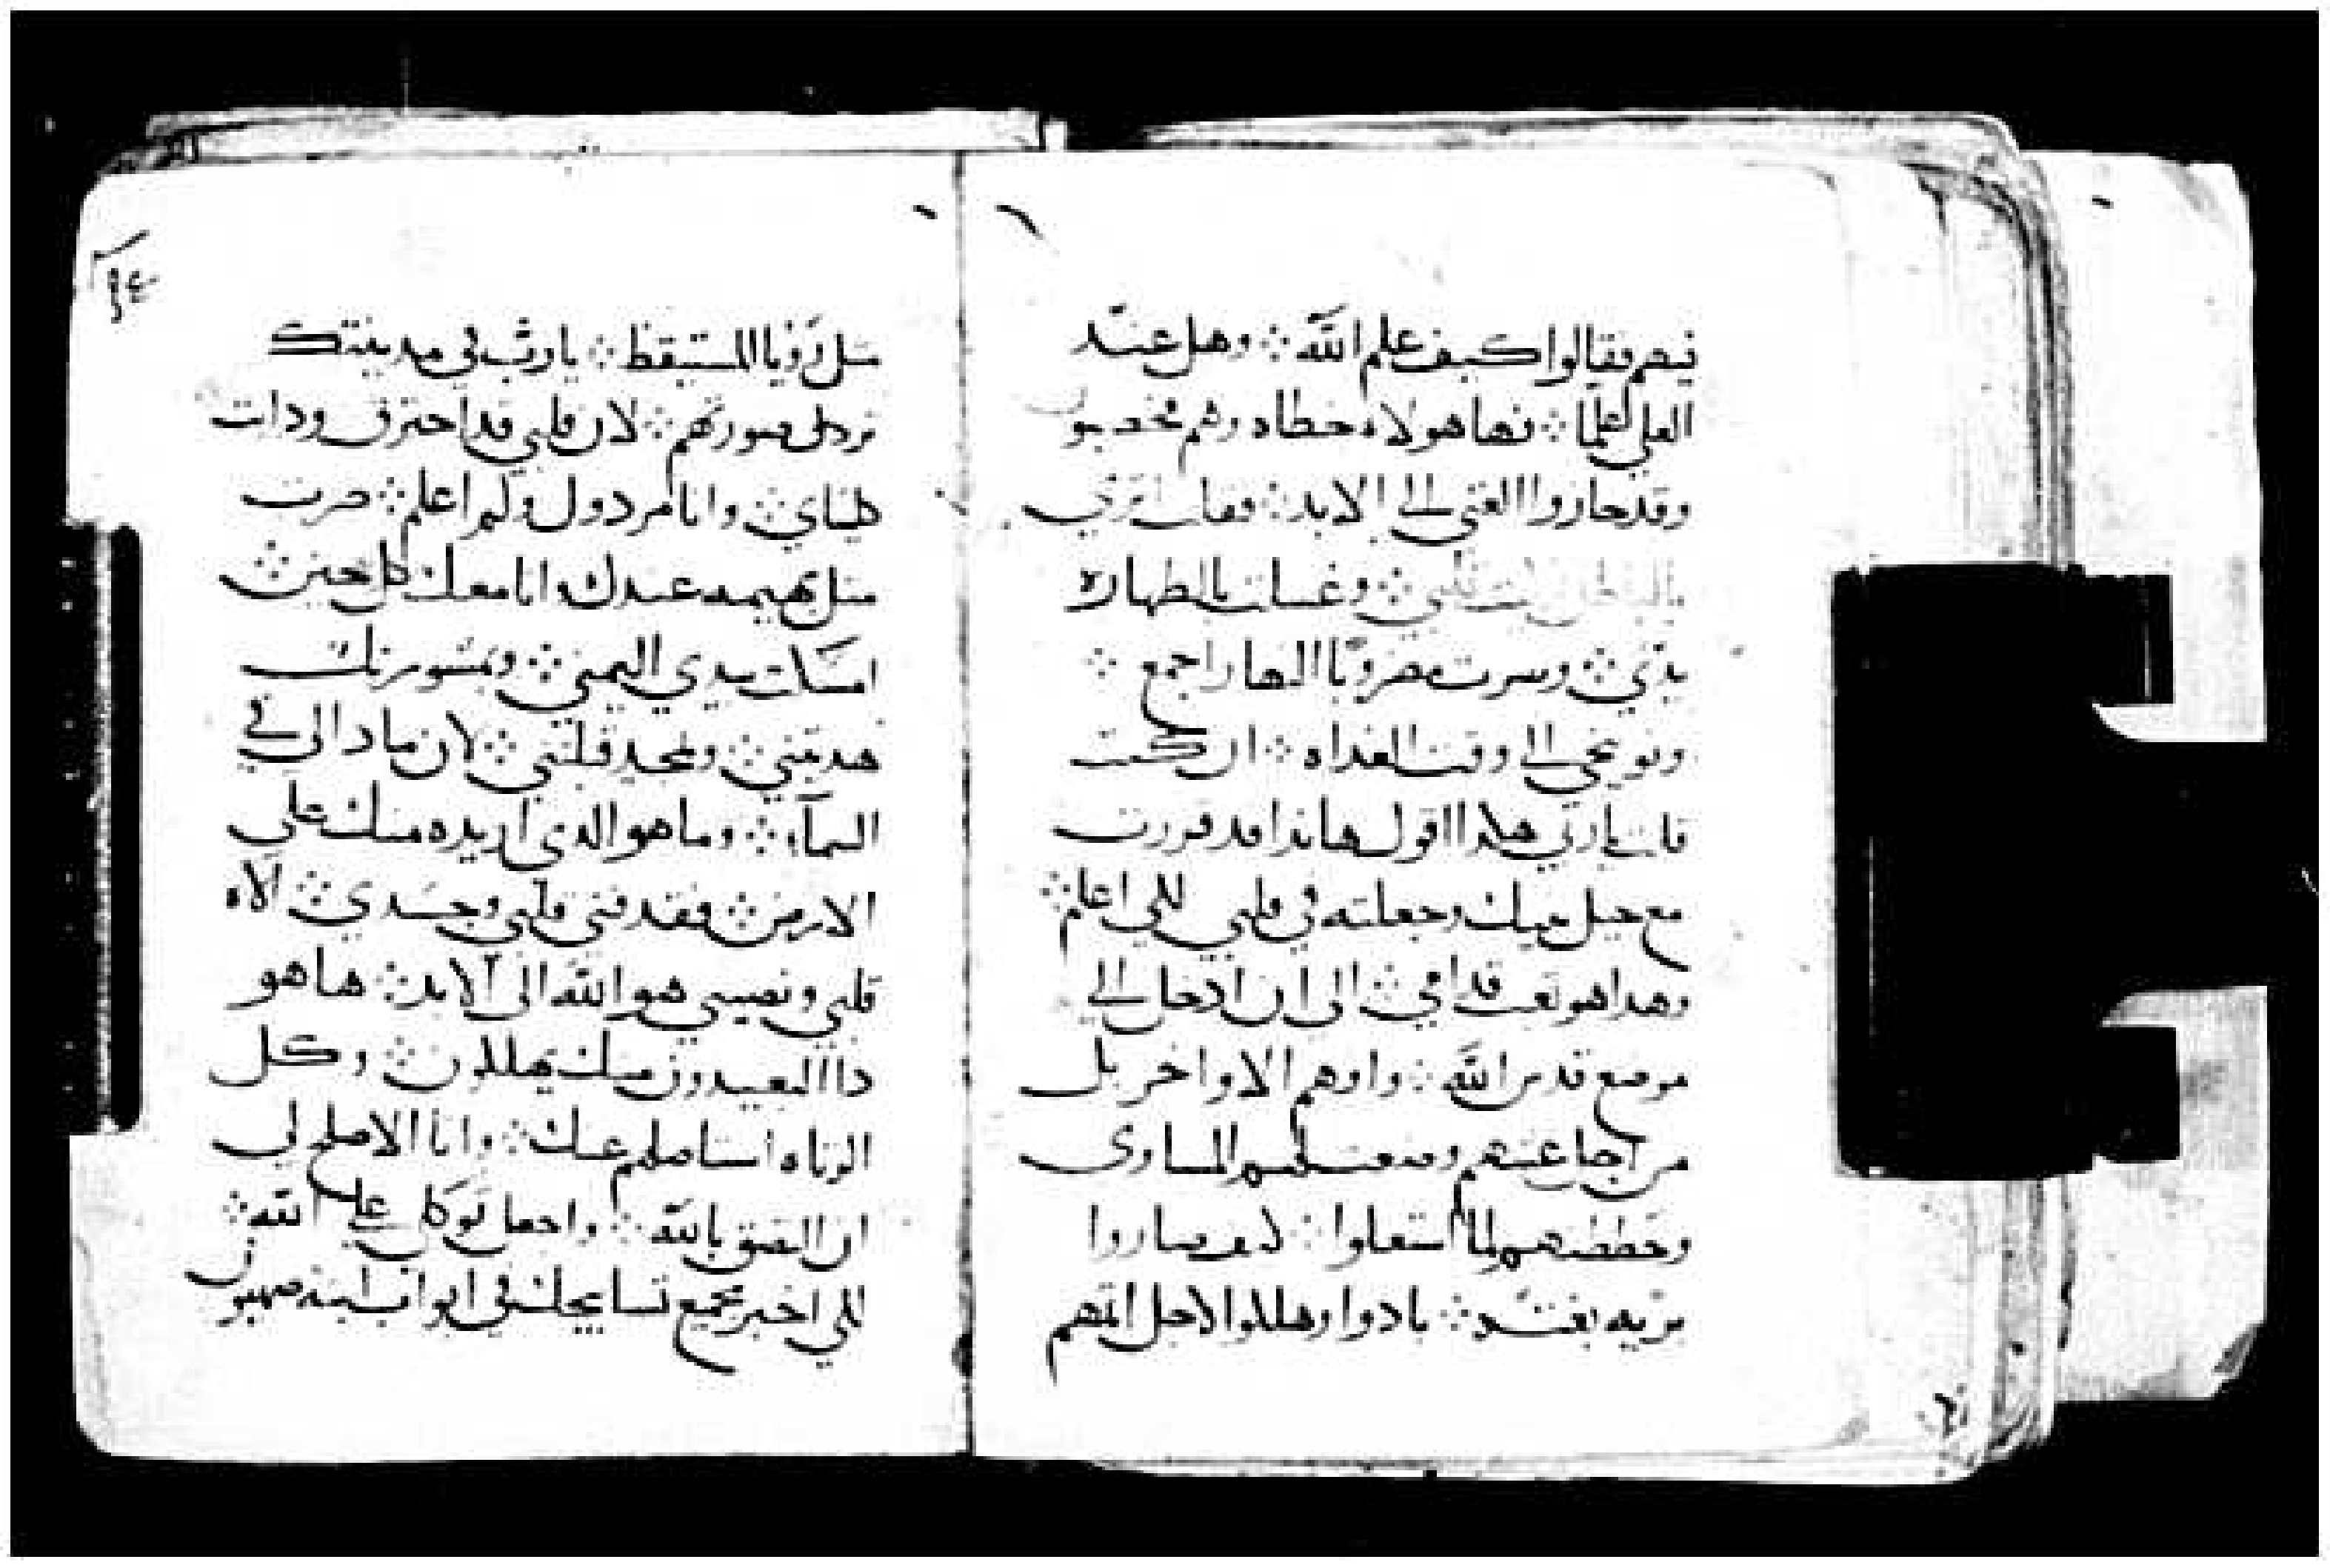 فيهم فقالوا كيف علم الله ⁘ وهل عند
العلي علما ⁘ فها هولاء خطاه وهم مخصبون
وقد حازوا الغنى الي الابد ⁘ وقلت اترى
بالبطل قلبي ⁘ وغسلت بالطهاره
يدي ⁘ وسرت مضروبا النهار اجمع ⁘
وتوبيخي الي وقت الغداه ⁘ ان كنت
قلت يا ربي هكدا اقول هاندا قد قررت
مع جيل بنيك وجعلته في قلبي لكي اعلم ⁘
وهدا هو تعب قدامي ⁘ الى ان ادخل الي
موضع قدس الله ⁘ وافهم الاواخر بل
من اجل غشهم وضعت لهم المساوى
وحططتهم لما استعلوا ⁘ كيف صاروا
بريه بغتة ⁘ بادوا وهلكوا لاجل اثمهم
مثل رويا المستيقظ ⁘ يا رب في مدينتك
تردل صورتهم ⁘ لان قلبي قد احترق ودابت
كليتاي ⁘ وانا مردول ولم اعلم ⁘ صرت
مثل بهيمه عندك وانا معك كل حين ⁘
امسكت بيدي اليمنى ⁘ وبمشورتك
هديتني ⁘ وبمجد قبلتني ⁘ لان مادا لي في
السماء ⁘ وما هو الدي اريده منك على
الارض ⁘ فقد فني قلبي وجسدي ⁘ الاه
قلبي ونصيبي هو الله الى الابد ⁘ ها هو
دا البعيدون منك يهلكون ⁘ وكل
الزناه استاصلهم عنك ⁘ وانا الاصلح لي
ان التصق بالله ⁘ واجعل توكلي علي الله ⁘
لكي اخبر بجميع تسابيحك في ابواب ابنة صهيون